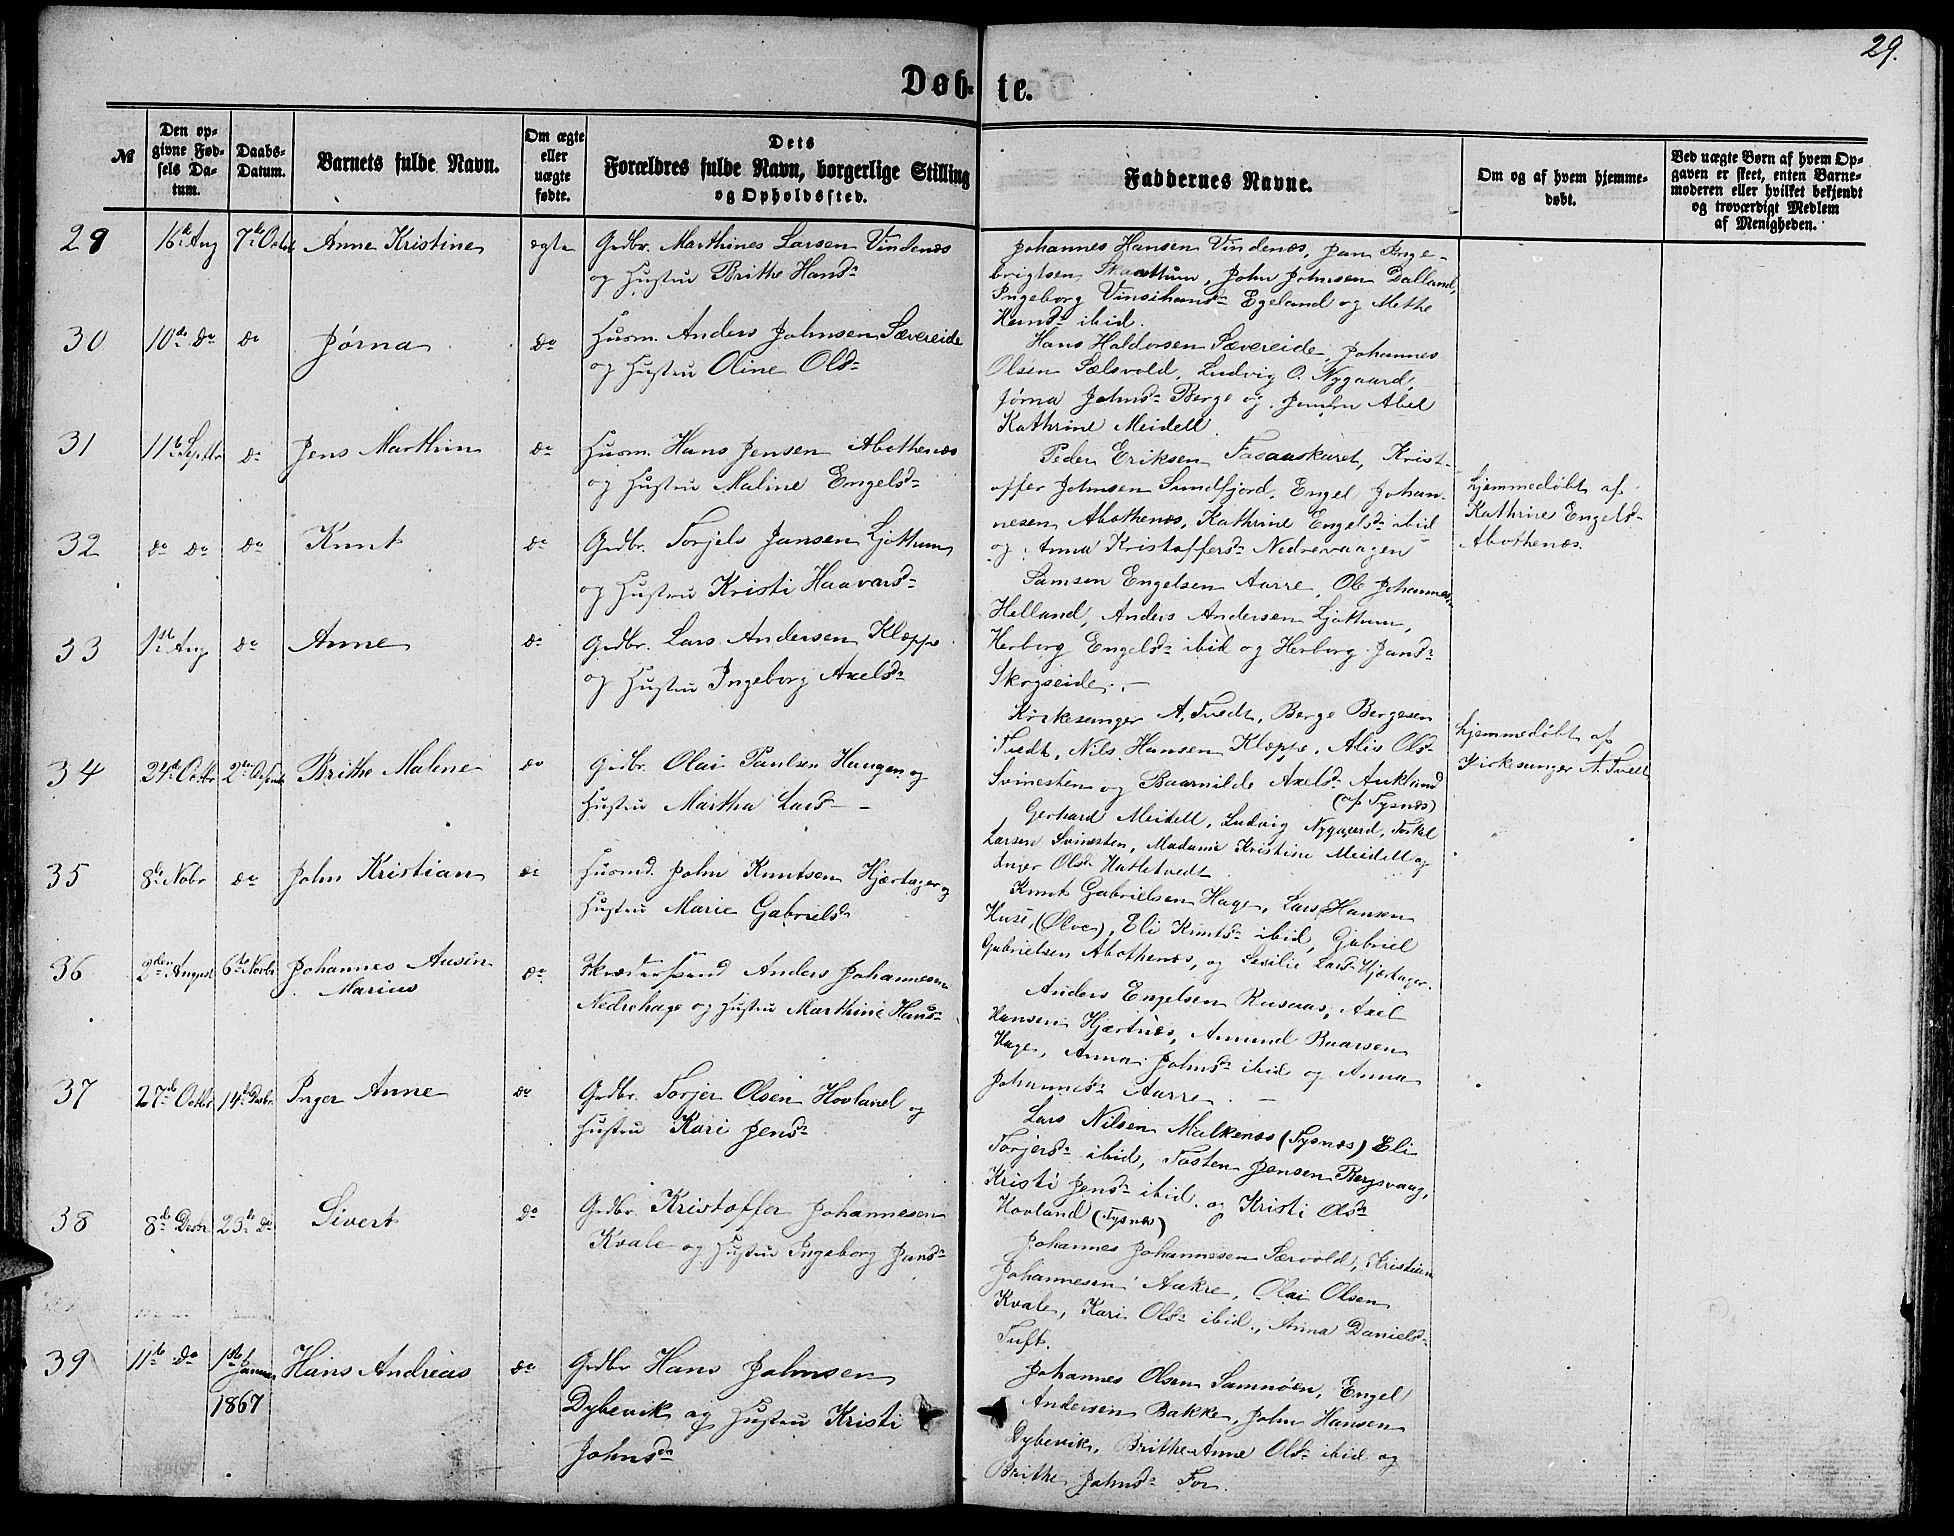 29.
Døb-te.
№
Den opgivne Fødsels Datum.
Daabs-Datum.
Barnets fulde Navn.
Om ægte eller uægte fødte.
Dets Forældres fulde Navn, borgerlige Stilling og Opholdssted.
Faddernes Navne.
Om og af hvem hjemmedøbt.
Ved uægte Børn af hvem Opgaven er skeet, enten Barnemoderen eller hvilket bekjendt og troværdigt Medlem af Menigheden.
29 16de Aug 7de Octbr Anne Kristine ægte Grdbr. Marthines Larsen Vindenæs
og Hustru Brithe Hansd.
Johannes Hansen Vindenæs, Jan Inge-
brigtsen Skaathun, John Johnsen Dalland,
Ingeborg Egeland og Methe
Hansd. ibid.
30 10de do do Jørna do Husm. Anders Johnsen Sævereide
og Hustru Oline Olsd.
Hans Haldorsen Sævereide, Johannes
Olsen Sælsvold, Ludvig O. Nygaard,
Jørna Johnsd. Berge og Jomfru Abel
Kathrine Meidell.
31 11te Septbr do Jens Marthin do Husm. Hans Jensen Abothenæs
og Hustru Maline Engelsd.
Peder Eriksen Faaaskaret, Krist-
offer Johnsen Sundfjord, Engel Johan-
nesen Abothenæs, Kathrine Engelsd. ibid
og Anna Kristoffersd. Nedrevaagen
hjemmedøbt af
Kathrine Engelsd.
Abothenæs.
32 do do do Knut do Grdbr. Torjels Jansen Ljothun
og Hustru Kristi Haavarsd.
Samson Engelsen Aarre, Ole Johannes.
Helland, Anders Andersen Ljothun,
Herborg Engelsd. ibid og Herborg Jansd.
Skogseide. —
33 1ste Aug do Anne do Grdbr. Lars Andersen Kleppe
og Hustru Ingeborg Axelsd.
Kirkesanger A. Tvedt, Berge Bergesen
Tvedt, Nils Hansen Kleppe, Alis Olsd.
Svinesten og Baarnilde Axelsd. Aukland
(af Tysnæs)
hjemmedøbt af
Kirkesanger A. Tvedt
34 24de Octbr 2den Brithe Maline do Grdbr. Olai Paulsen Haugen og
Hustru Martha Larsd —
Gerhard Meidell, Ludvig Nygaard, Torkel
Larsen Svinesten, Madame Kristine Meidell og
Inger Olsd. Hatletvedt
35 8de Nobr do John Kristian do Husmd. John Knutsen Hjærtager og
Hustru Marie Gabrielsd.
Knut Gabrielsen Hage, Lars Hansen
Huse, (Ølve), Eli Knutsd. ibid, Gabriel
Gabrielsen Abothenæs, og Sesilie Larsd. Hjærtager.
36 2den August 6te Novbr Johannes Ausen
Marius do Anders Johannesen
Nedrehage og Hustru Marthine Hansd.
Anders Engelsen Rusaas, Axel
Hansen Hjærtnes, Amund Baarsen
Hage, Anna Johnsd. ibid og Anna
Johannesd. Aarre. —
37 27de Octbr 14de Decbr. Inger Anne do Grdbr. Torjer Olsen Hovland og
Hustru Kari Jensd.
Lars Nilsen Malkenæs (Tysnæs) Eli
Torjersd. ibid, Tosten Jensen Bergsvaag,
Kristi Jensd. ibid. og Kristi Olsd.
Hovland (Tysnæs)
38 8de Decbr 25de do Sivert do Grdbr. Kristoffer Johannesen
Kvale og Hustru Ingeborg Jansd.
Johannes Johannesen Særvold, Kristian
Johannesen Aakre, Olai Olsen
Kvale, Kari Olsd. ibid., Anna Daniels-
Tuft.
39 11te do 1ste Januar
1867 Hans Andreas do Grdbr Hans Johnsen
Dybevik og Hustru Kristi
Johnsd.
Johannes Olsen Samnøen, Engel
Andersen Bakke, John Hansen
Dybevik, Brithe-Anne Olsd. ibid og
Brithe Johnsd. For.